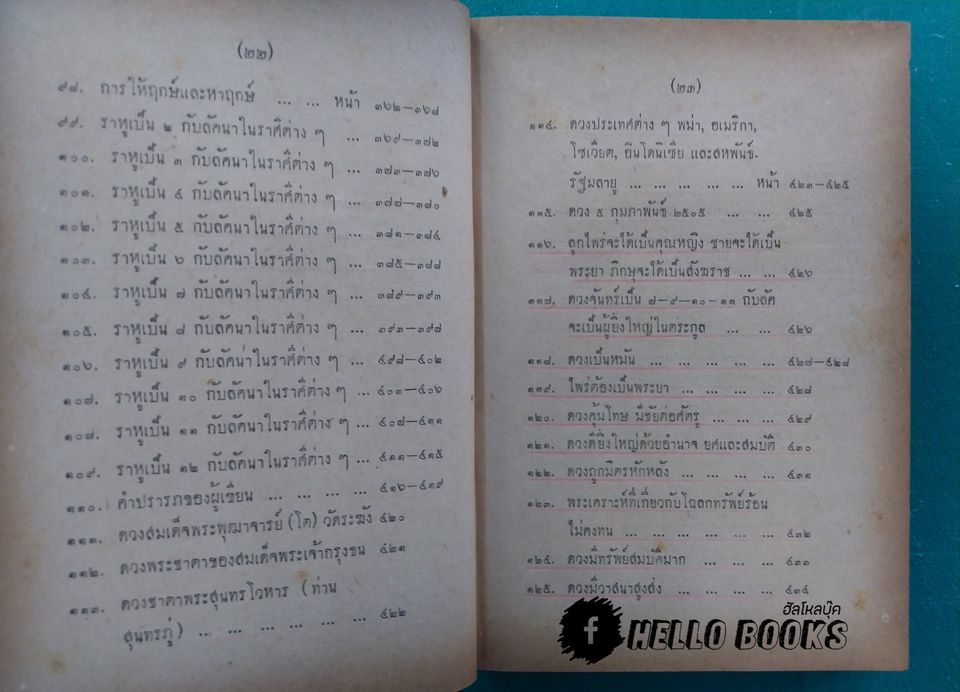 (๒๒)
๙๘. การให้ฤกษ์และหาฤกษ์ ... ... หน้า ๓๖๒—๓๖๘
๙๙. ราหูเป็น ๒ กับลัคนาในราศีต่าง ๆ ... ๓๖๙—๓๗๒
๑๐๐. ราหูเป็น ๓ กับลัคนาในราศีต่าง ๆ ... ๓๗๓—๓๗๖
๑๐๑. ราหูเป็น ๔ กับลัคนาในราศีต่าง ๆ ... ๓๗๗—๓๘๐
๑๐๒. ราหูเป็น ๕ กับลัคนาในราศีต่าง ๆ ... ๓๘๑—๓๘๔
๑๐๓. ราหูเป็น ๖ กับลัคนาในราศีต่าง ๆ ... ๓๘๕—๓๘๘
๑๐๔. ราหูเป็น ๗ กับลัคนาในราศีต่าง ๆ ... ๓๘๙—๓๙๓
๑๐๕. ราหูเป็น ๘ กับลัคนาในราศีต่าง ๆ ... ๓๙๓—๓๙๗
๑๐๖. ราหูเป็น ๙ กับลัคนาในราศีต่าง ๆ ... ๔๙๘—๔๐๒
๑๐๗. ราหูเป็น ๑๐ กับลัคนาในราศีต่าง ๆ ... ๔๐๓—๔๐๖
๑๐๘. ราหูเป็น ๑๑ กับลัคนาในราศีต่าง ๆ ... ๔๐๗—๔๑๑
๑๐๙. ราหูเป็น ๑๒ กับลัคนาในราศีต่าง ๆ ... ๔๑๑—๔๑๕
๑๑๐. คำปรารภของผู้เขียน ... ... ... ... ๔๑๖—๔๑๙
๑๑๑. ดวงสมเด็จพระพุฒาจารย์ (โต) วัดระฆัง ๔๒๐
๑๑๒. ดวงพระชาตาของสมเด็จพระเจ้ากรุงธน ๔๒๑
๑๑๓. ดวงชาตาพระสุนทรโวหาร (ท่าน
สุนทรภู่) ... ... ... ... ... ... ๔๒๒
(๒๓)
๑๑๔. ดวงประเทศต่าง ๆ พม่า, อเมริกา,
โซเวียต, อินโดนิเซีย และสหพันธ์-
รัฐมลายู ... ... ... ... ... หน้า ๔๒๓—๔๒๕
๑๑๕. ดวง ๕ กุมภาพันธ์ ๒๕๐๕ ... ... ๔๒๕
๑๑๖. ลูกไพร่จะได้เป็นคุณหญิง ชายจะได้เป็น
พระยา ภิกษุจะได้เป็นสังฆราช ... ... ๔๒๖
๑๑๗. ดวงจันทร์เป็น ๗—๙—๑๐—๑๑ กับลัค
จะเป็นผู้ยิ่งใหญ่ในตระกูล ... ... ๔๒๖
๑๑๘. ดวงเป็นหมัน ... ... ... ... ... ๔๒๗—๔๒๘
๑๑๙. ไพร่ต้องเป็นพระยา ... ... ... ... ๔๒๘
๑๒๐. ดวงคุ้มโทษ มีชัยต่อศัตรู ... ... ... ๔๒๙
๑๒๑. ดวงดียิ่งใหญ่ด้วยอำนาจ ยศและสมบัติ ๔๓๐
๑๒๒. ดวงถูกมิตรหักหลัง ... ... ... ... ๔๓๑
๑๒๓. พระเคราะห์ที่เกี่ยวกับโฉลกทรัพย์ร้อน
ไม่คงทน ... ... ... ... ... ... ๔๓๒
๑๒๔. ดวงมีทรัพย์สมบัติมาก ... ... ... ๔๓๓
๑๒๕. ดวงมีวาสนาสูงส่ง ... ... ... ... ๔๓๔
ฮัลโหลบุ๊ค
f HELLO BOOKS